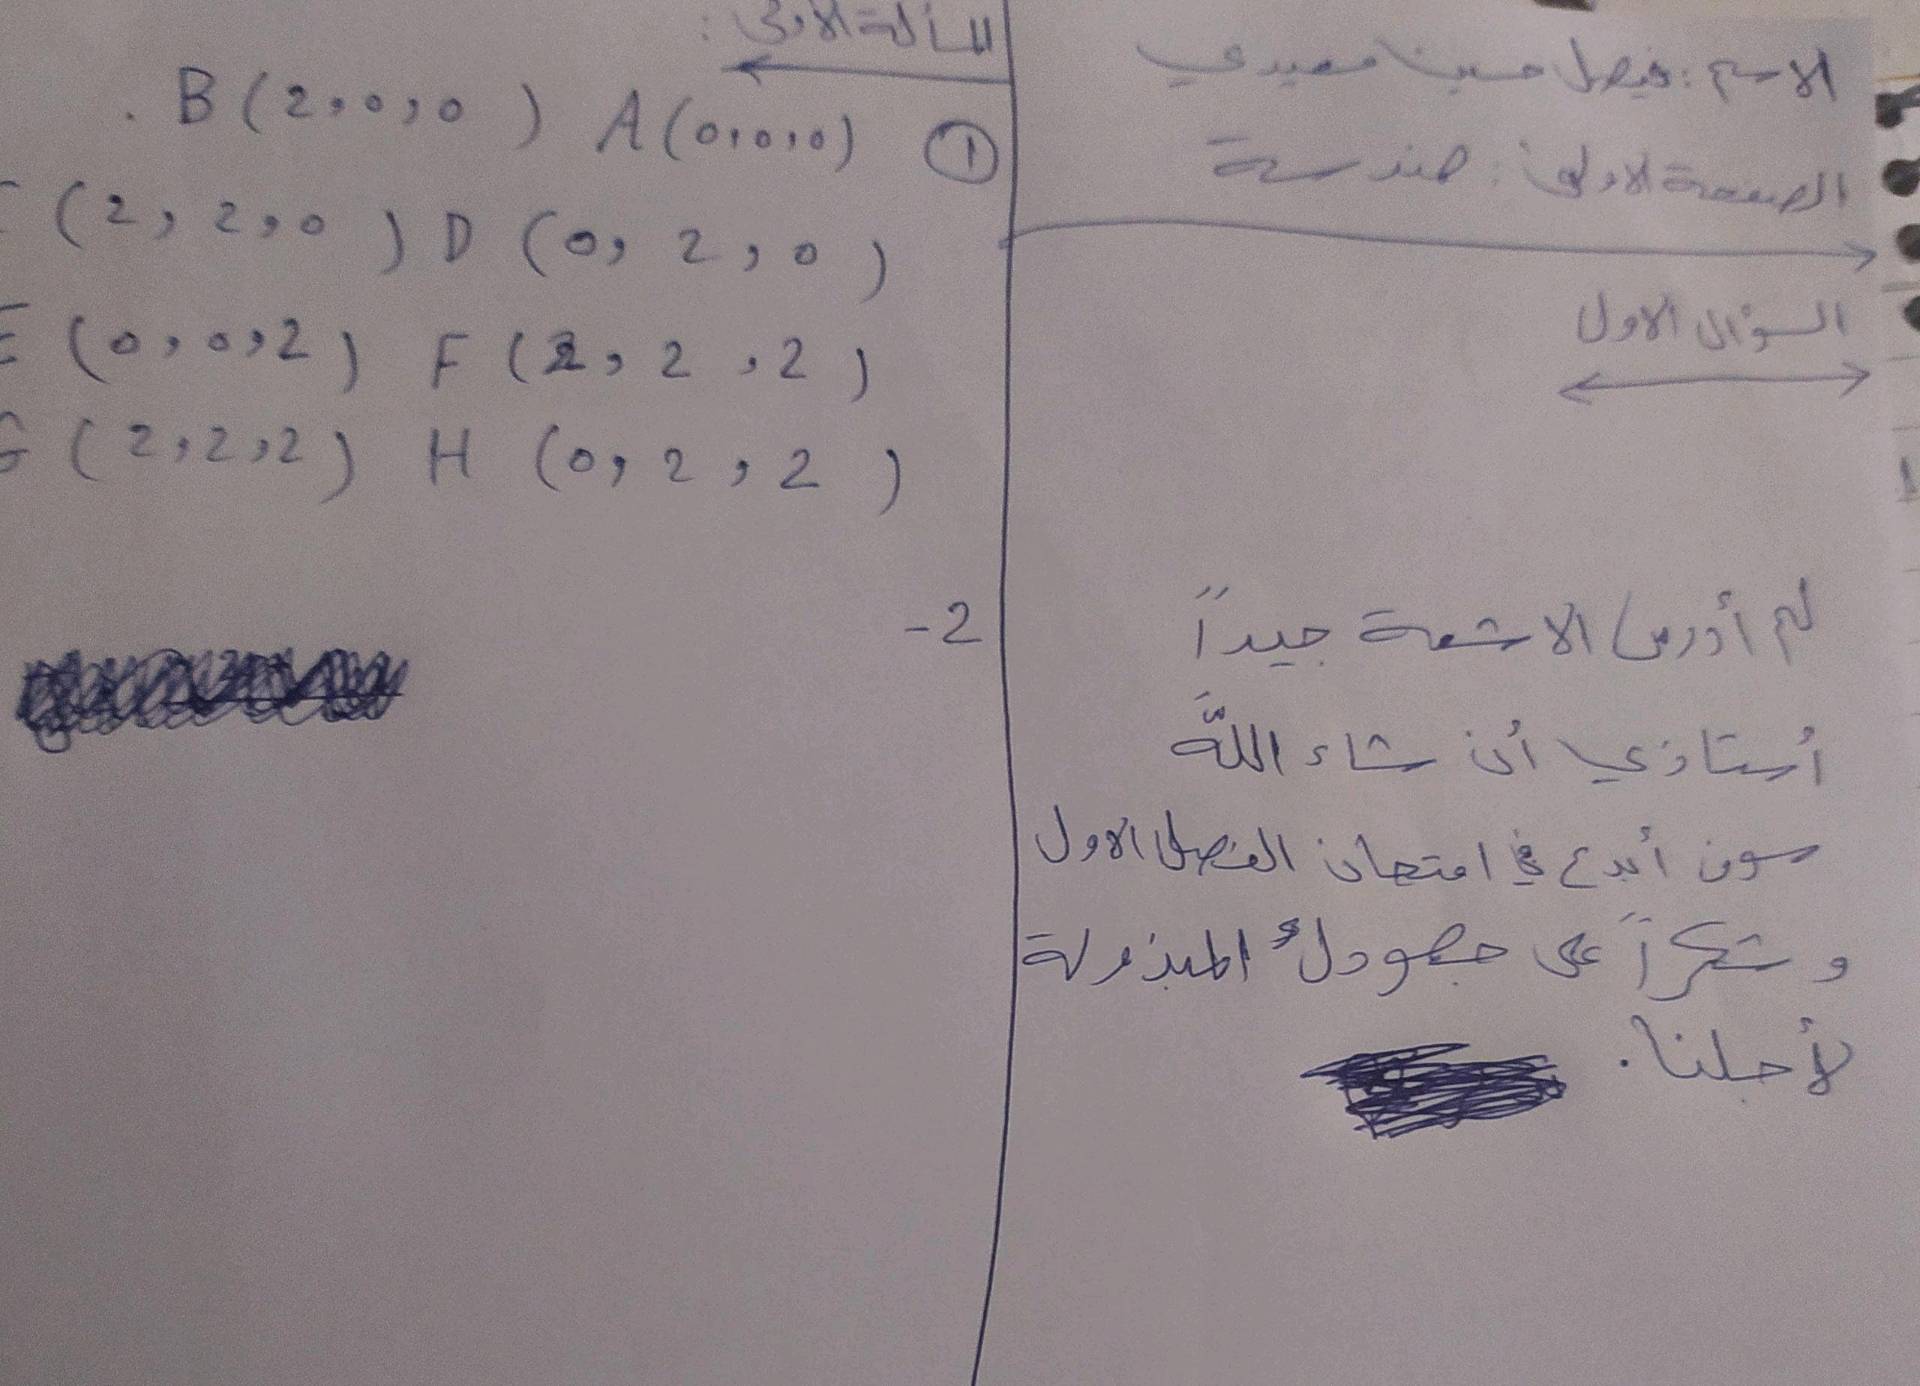 الاسم: فيصل حسين معيدي
الصفحة الاولى: هندسة
السؤال الاول
لم أدرس الاشعة جيداً
أستاذي أن شاء اللَّه
سوف أبدع في امتحان الفصل الاول
و شكراً على جهودك المبذولة
لأجلنا.
المسألة الاولى:
① A(0,0,0) B(2,0,0)
D(0,2,0) (2,2,0)
E(0,0,2) F(2,2,2)
G(2,2,2) H(0,2,2)
2-